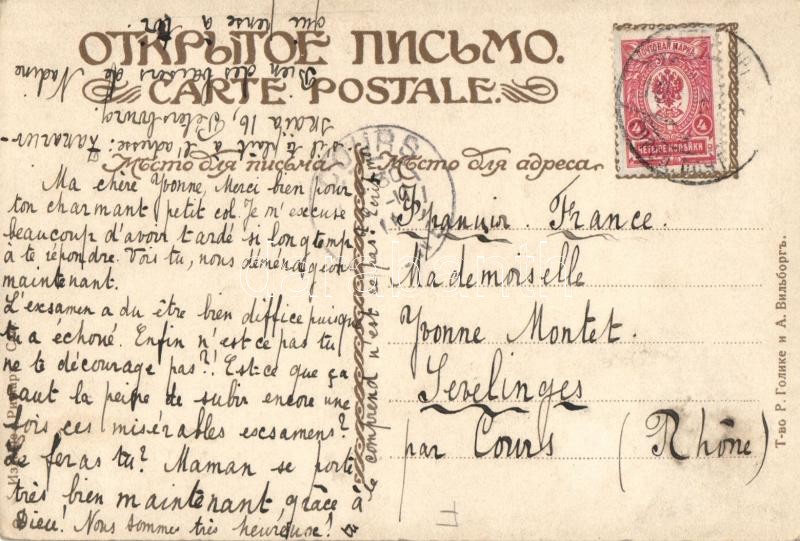 ОТКРЫТОЕ ПИСЬМО.
CARTE POSTALE.
Мѣсто для письма
Мѣсто для адреса
ПОЧТОВАЯ МАРКА
4 4
ЧЕТЫРЕ КОПѢЙКИ
COURS
Ma chère Yvonne, Merci bien pour
ton charmant petit col. Je m'excuse
beaucoup d'avoir tardé si longtemp
à te répondre. Vois tu, nous déménageons
maintenant.
L'exsamen a du être bien difficе puisque
tu a échoué. Enfin n'est ce pas tu
ne te décourage pas?! Est-ce que ça
vaut la peine de subir encore une
fois, ces misérables exsamens?
feras tu? Maman se porte
très bien maintenant, grâce à
Dieu! Nous sommes très heureuse!
le comprend n'est ce pas? Ecris m
s'il te plait à l'adresse:
16, Petersbourg.
Bien des baisers de Nadine
qui pense à toi
Франція. France.
Mademoiselle
Yvonne Montet.
Sevelinges
par Cours (Rhône)
Т-во Р. Голике и А. Вильборгъ.
darabanth